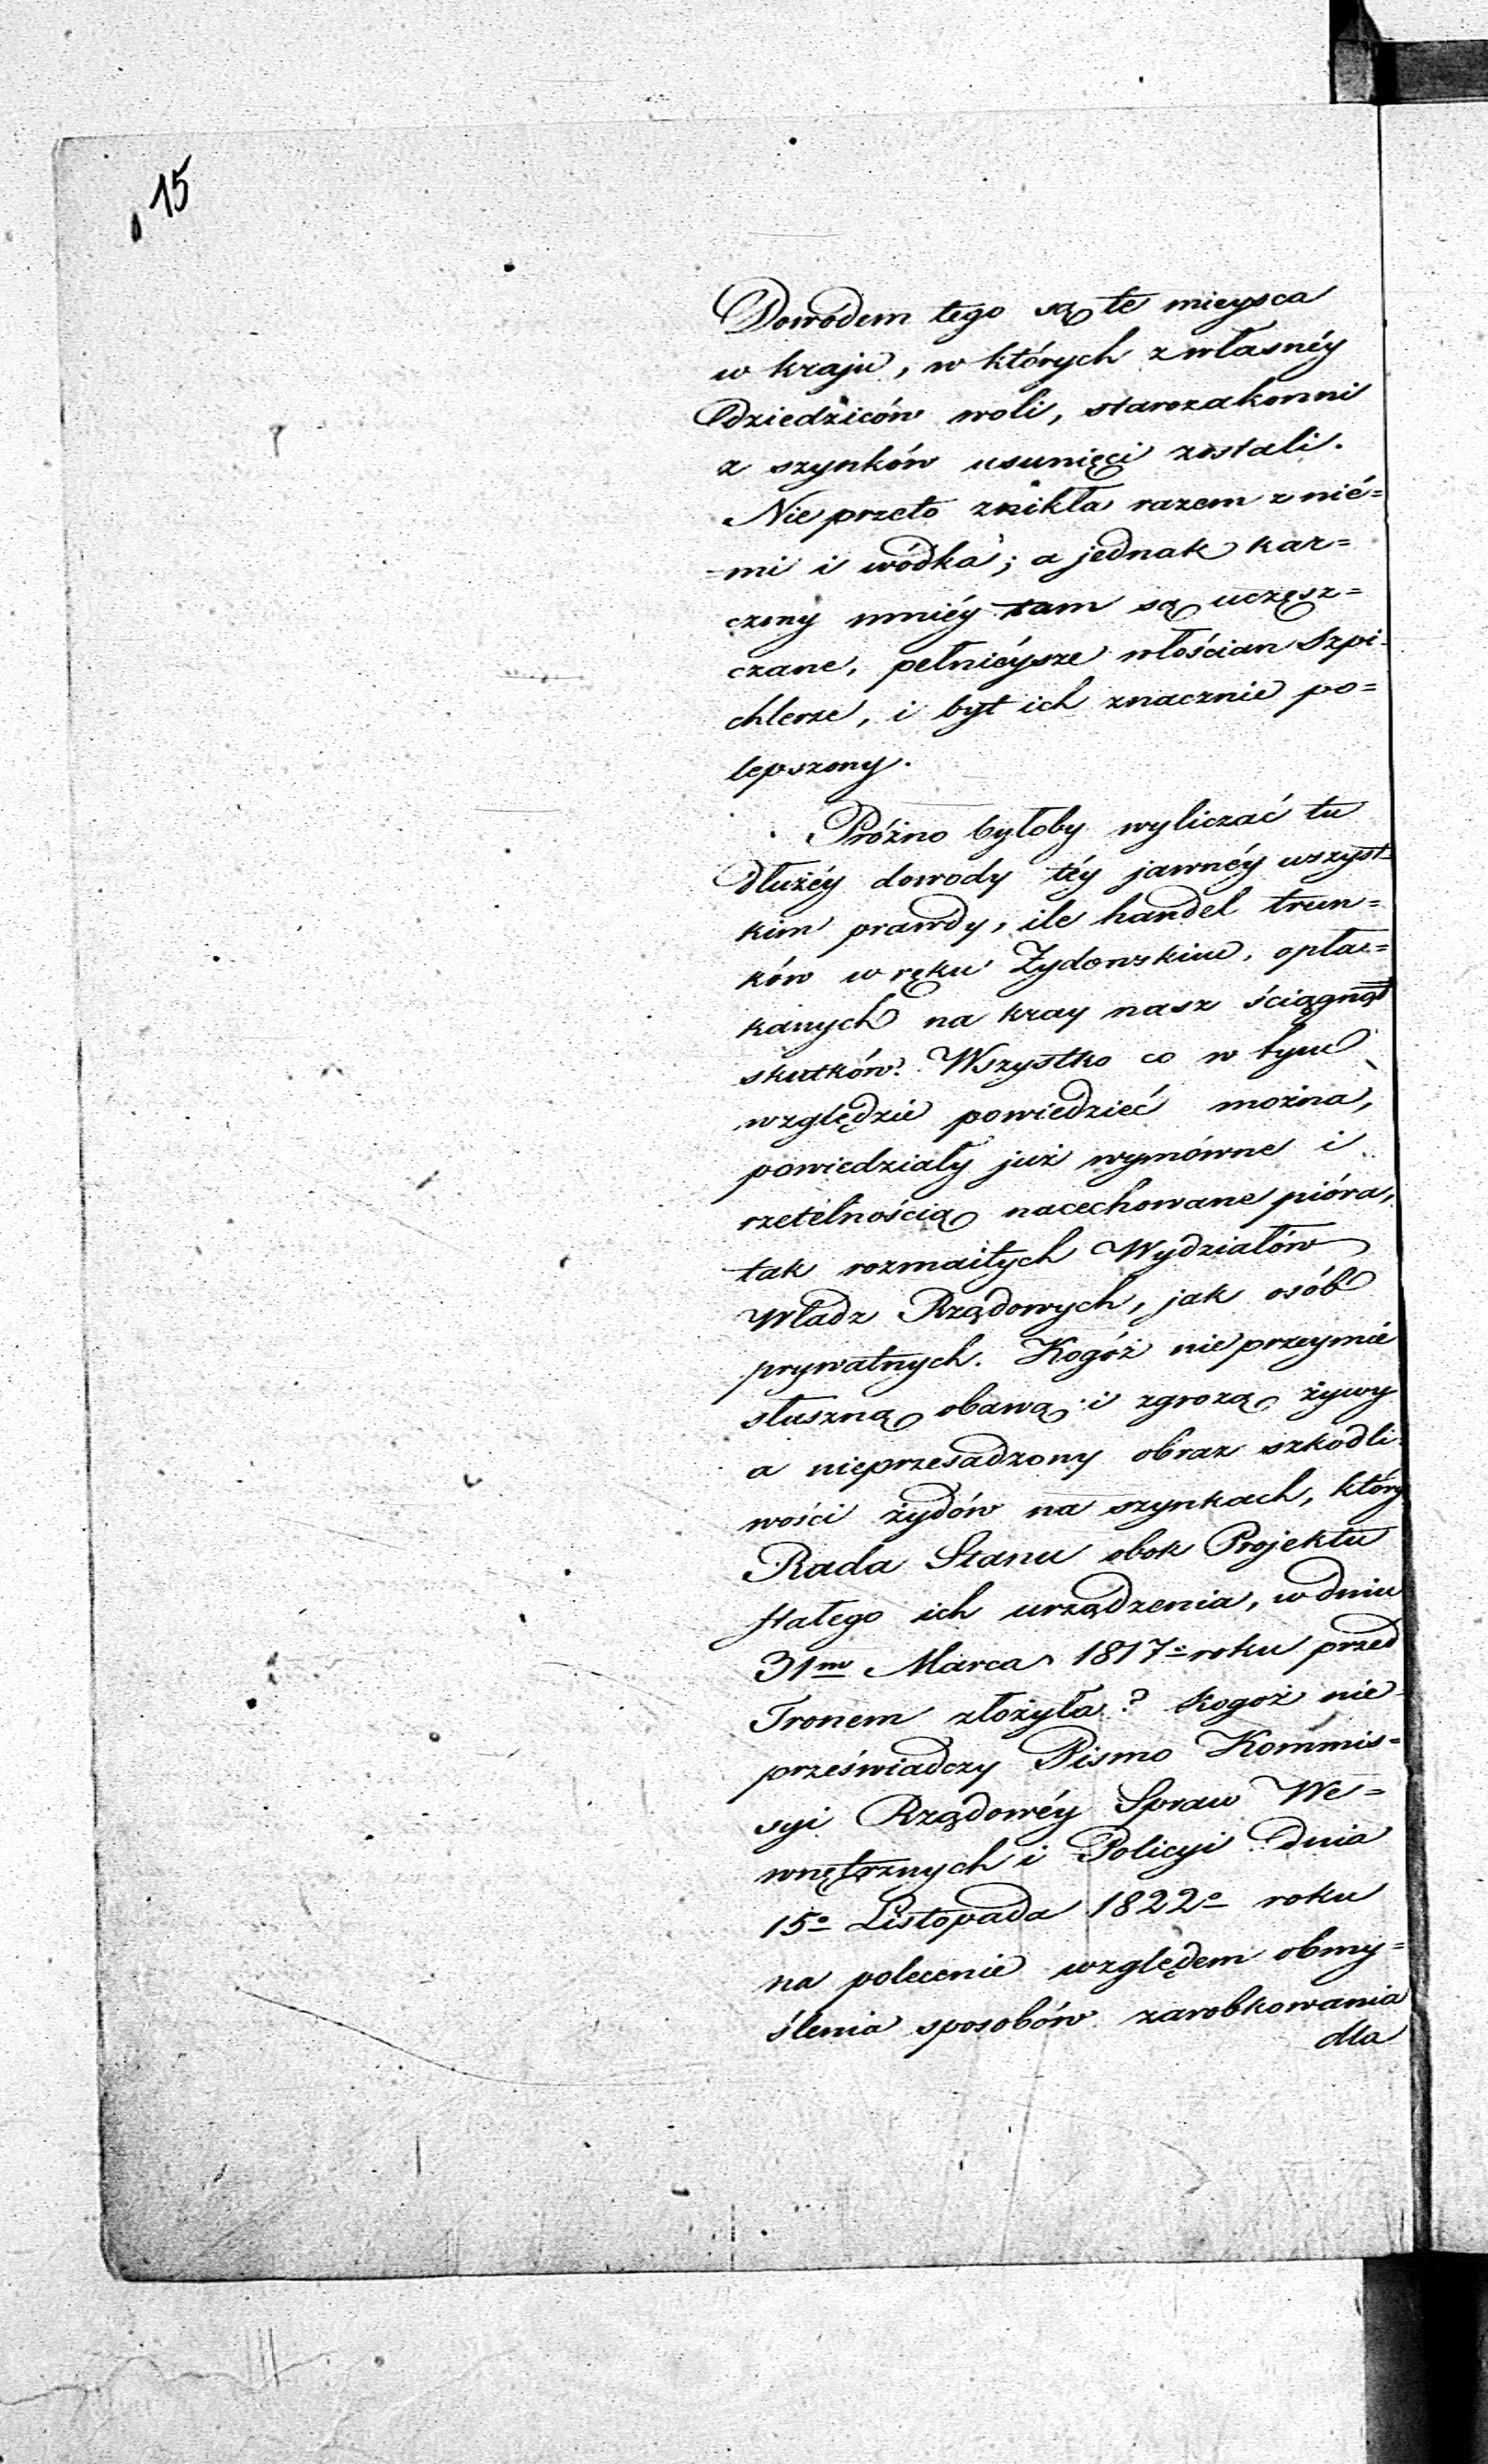 15
Dowódem tego są te mieysca
w kraju, w których z własnéy
Dziedziców woli, starozakonni
z szynków usunięci zostali.
Nie przeto znikła razem z nié=
=mi i wódka; a jednak kar=
czmy mniéy tam są uczęsz=
czane, pełniéysze włościan szpi=
chlerze, i byt ich znacznie po=
lepszony.
Próżno byłoby wyliczać tu
dłużéy dowody téy jawnéy wszyst=
kim prawdy, ile handel trun=
ków w ręku Żydowskim, opła=
kanych na kray nasz ściągnął
skutków. Wszystko co w tym
względzie powiedzieć można,
powiedziały już wymówne i
rzetelnością nacechowane pióra,
tak rozmaitych Wydziałów
Władz Rządowych, jak osób
prywatnych. Kogóż nie przeymie
słuszną obawą i zgrozą żywy
a nieprzesadzony obraz szkodli=
wości żydów na szynkach, który
Rada Stanu obok Projektu
stałego ich urządzenia, w dniu
31m Marca 1817o roku przed
Tronem złożyła? Kogoż nie
przeświadczy Pismo Kommis=
syi Rządowéy Spraw We=
wnętrznych i Policyi dnia
15o Listopada 1822o roku
na polecenie względem obmy=
ślenia sposobów zarobkowania
dla